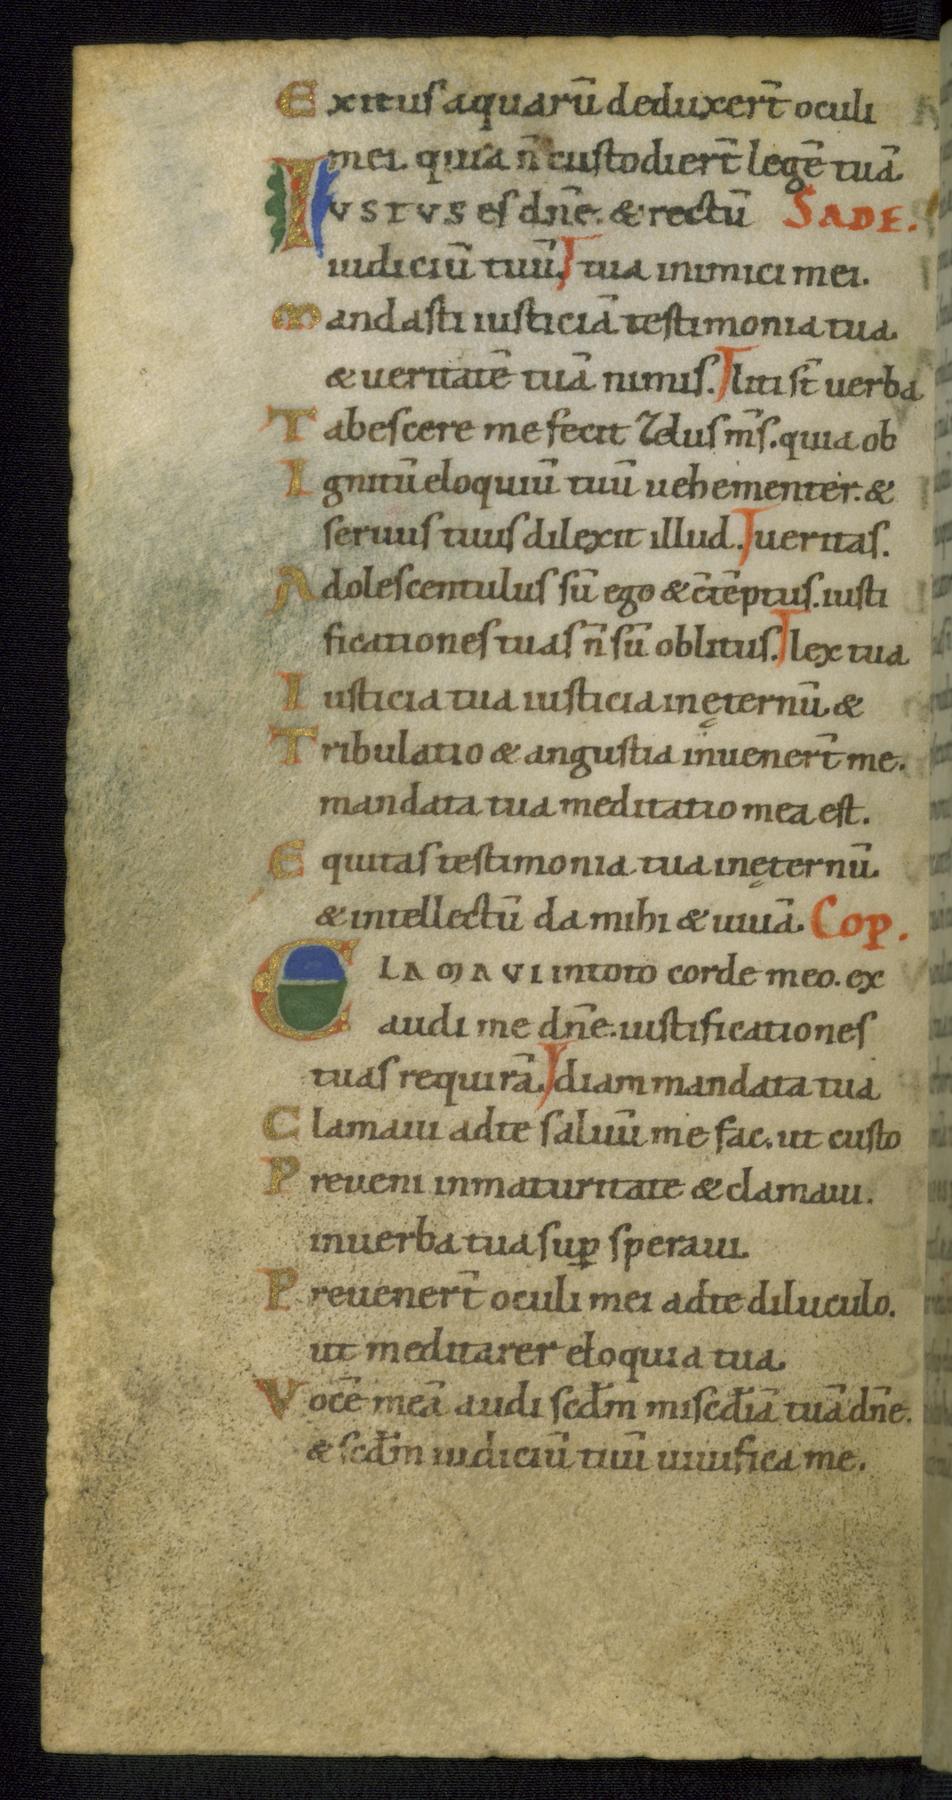 Exitus aquarū deduxert̄ oculi
mei. quia n̄ custodiert̄ legē tuā.
IVSTVS es dn̄e. & rectū SADE.
iudiciū tuū. tua inimici mei.
Mandasti iusticiā testimonia tua.
& ueritatē tuā nimis. liti st̄ uerba
Tabescere me fecit zelus m̄s. quia ob
Ignitū eloquiū tuū uehementer. &
seruus tuus dilexit illud. ueritas.
Adolescentulus sū ego & c̄tēptus. iusti
ficationes tuas n̄ sū oblitus. lex tua
Iusticia tua iusticia in ęternū. &
Tribulatio & angustia inuenert̄ me.
mandata tua meditatio mea est.
Equitas testimonia tua in ęternū.
& intellectū da mihi & uiuā. Cop.
CLAMAVI in toto corde meo. ex
audi me dn̄e. iustificationes
tuas requirā. diam mandata tua
Clamaui ad te saluū me fac. ut custo
Preueni in maturitate & clamaui.
in uerba tua suꝑ speraui.
Preuenert̄ oculi mei ad te diluculo.
ut meditarer eloquia tua.
Vocē meā audi scd̄m miscd̄iā tuā dn̄e.
& scd̄m iudiciū tuū uiuifica me.